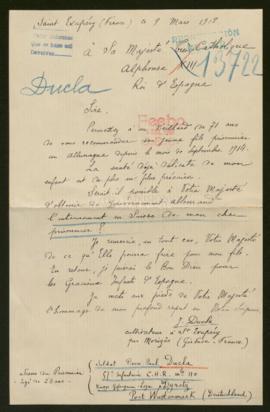 Saint Exupéry (Gironde) le 9 Mars 1918
A Sa Majesté très Catholique
Alphonse XIII
13722
Ducla
Roi d'Espagne
Sire,
Permettez à un Vieillard de 71 ans
de vous recommander son jeune fils prisonnier
en Allemagne depuis le mois de Septembre 1914.
La santé déjà délicate de mon
enfant est de plus en plus précaire.
Serait-il possible à Votre Majesté
d'obtenir du Gouvernement allemand
l'internement en Suisse de mon cher
prisonnier ?
Je remercie, en tout cas, Votre Majesté
de ce qu'Elle pourra faire pour mon fils.
En retour, je prierai le Bon Dieu pour
les Gracieux Infants d'Espagne.
Je mets aux pieds de Votre Majesté
l'hommage de mon profond respect
J. Ducla
cultivateur à St Exupéry
par Monségur (Gironde) France
Soldat Pierre Paul Ducla
Infanterie C.H.R.
Post Wudemark (Deutschland)